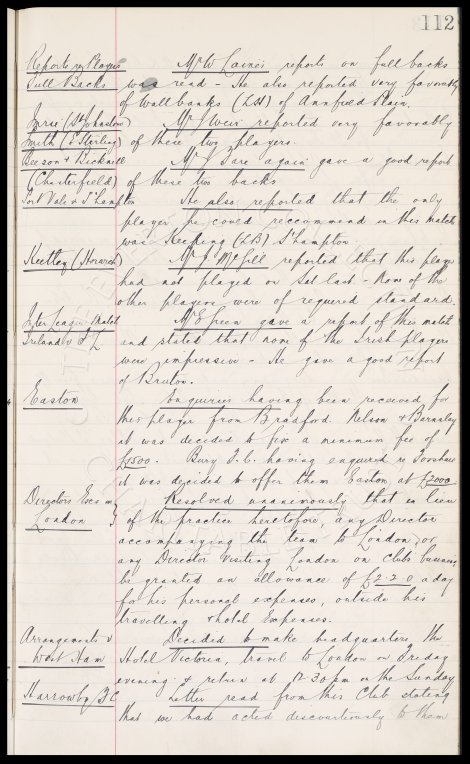 112
Reports re Players Mr W Caine's reports on full backs
Full Backs was read - He also reported very favorably
of Wallbanks (LH) of Annfield Plain.
Imrie (St Johnstone) Mr J Weir reported very favorably
Smith (E Stirling) of these two players.
Beeson & Bicknell Mr J Sare again gave a good report
(Chesterfield) of these two backs
Port Vale v S'hampton He also reported that the only
player he could reccommend in this match
was Keeping (LB) S'hampton
Keetley (Horwich) Mr J McGill reported that this player
had not played on Sat last - None of the
other players were of required standard.
Inter League Match Mr E Green gave a report of this match
Ireland v F L and stated that none of the Irish players
were impressive - He gave a good report
of Bruton.
Easton Enquiries having been received for
this player from Bradford, Nelson & Barnsley
it was decided to fix a minimum fee of
£1500. Bury F.C. having enquired re
it was decided to offer them Easton at £2000
Directors Exes in Resolved unanimously that in lieu
London of the practice heretofore, any Director
accompanying the team to London, or
any Director visiting London on Clubs business
be granted an allowance of £2-2-0 a day
for his personal expenses, outside his
travelling & hotel Expenses.
Arrangements v Decided to make headquarters the
West Ham Hotel Victoria, travel to London on Friday
evening & return at 12-30 pm on the Sunday
Harrowby F.C. Letter read from this Club stating
that we had acted discourteously to them